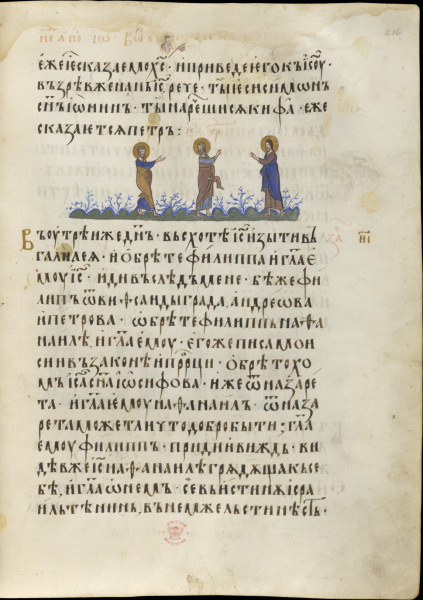 еже їе сказаемо хс҃ · и приведе и его къ іс҃оу ·
възрѣвже нань іс҃ рече · ты еси симѡнъ
сн҃ъ іѡнинъ · ты наречешися кифа · еже
сказаются петръ :
Въ оутреиже дн҃ь · въсхотѣ іс҃ изыти въ
галилеѧ · и обрѣте филиппа и гл҃а е
моу іс҃ · иди въ слѣд мене · бѣже фи
липъ ѿ виѳсаиды града, андреѡва
и петрова · ѡбрѣте филиппъ наѳа
наилѣ, и гл҃а емоу · егоже писа мои
си и въ законѣ и прр҃ци · обрѣтохо
мъ іс҃а сн҃а іѡсифова · иже ѿ назаре
та · и гл҃а емоу наѳанаилъ · ѿ наза
рета може ли что добро быти ; гл҃а
емоу филиппъ · прииди и виждь · ви
дѣвже іс҃ наѳанаилѣ грядѫща къ се
бѣ, и гл҃а ѡ немъ · се въистинѫ ісра
ильтѣнинь, въ немже льсти нѣсть ·